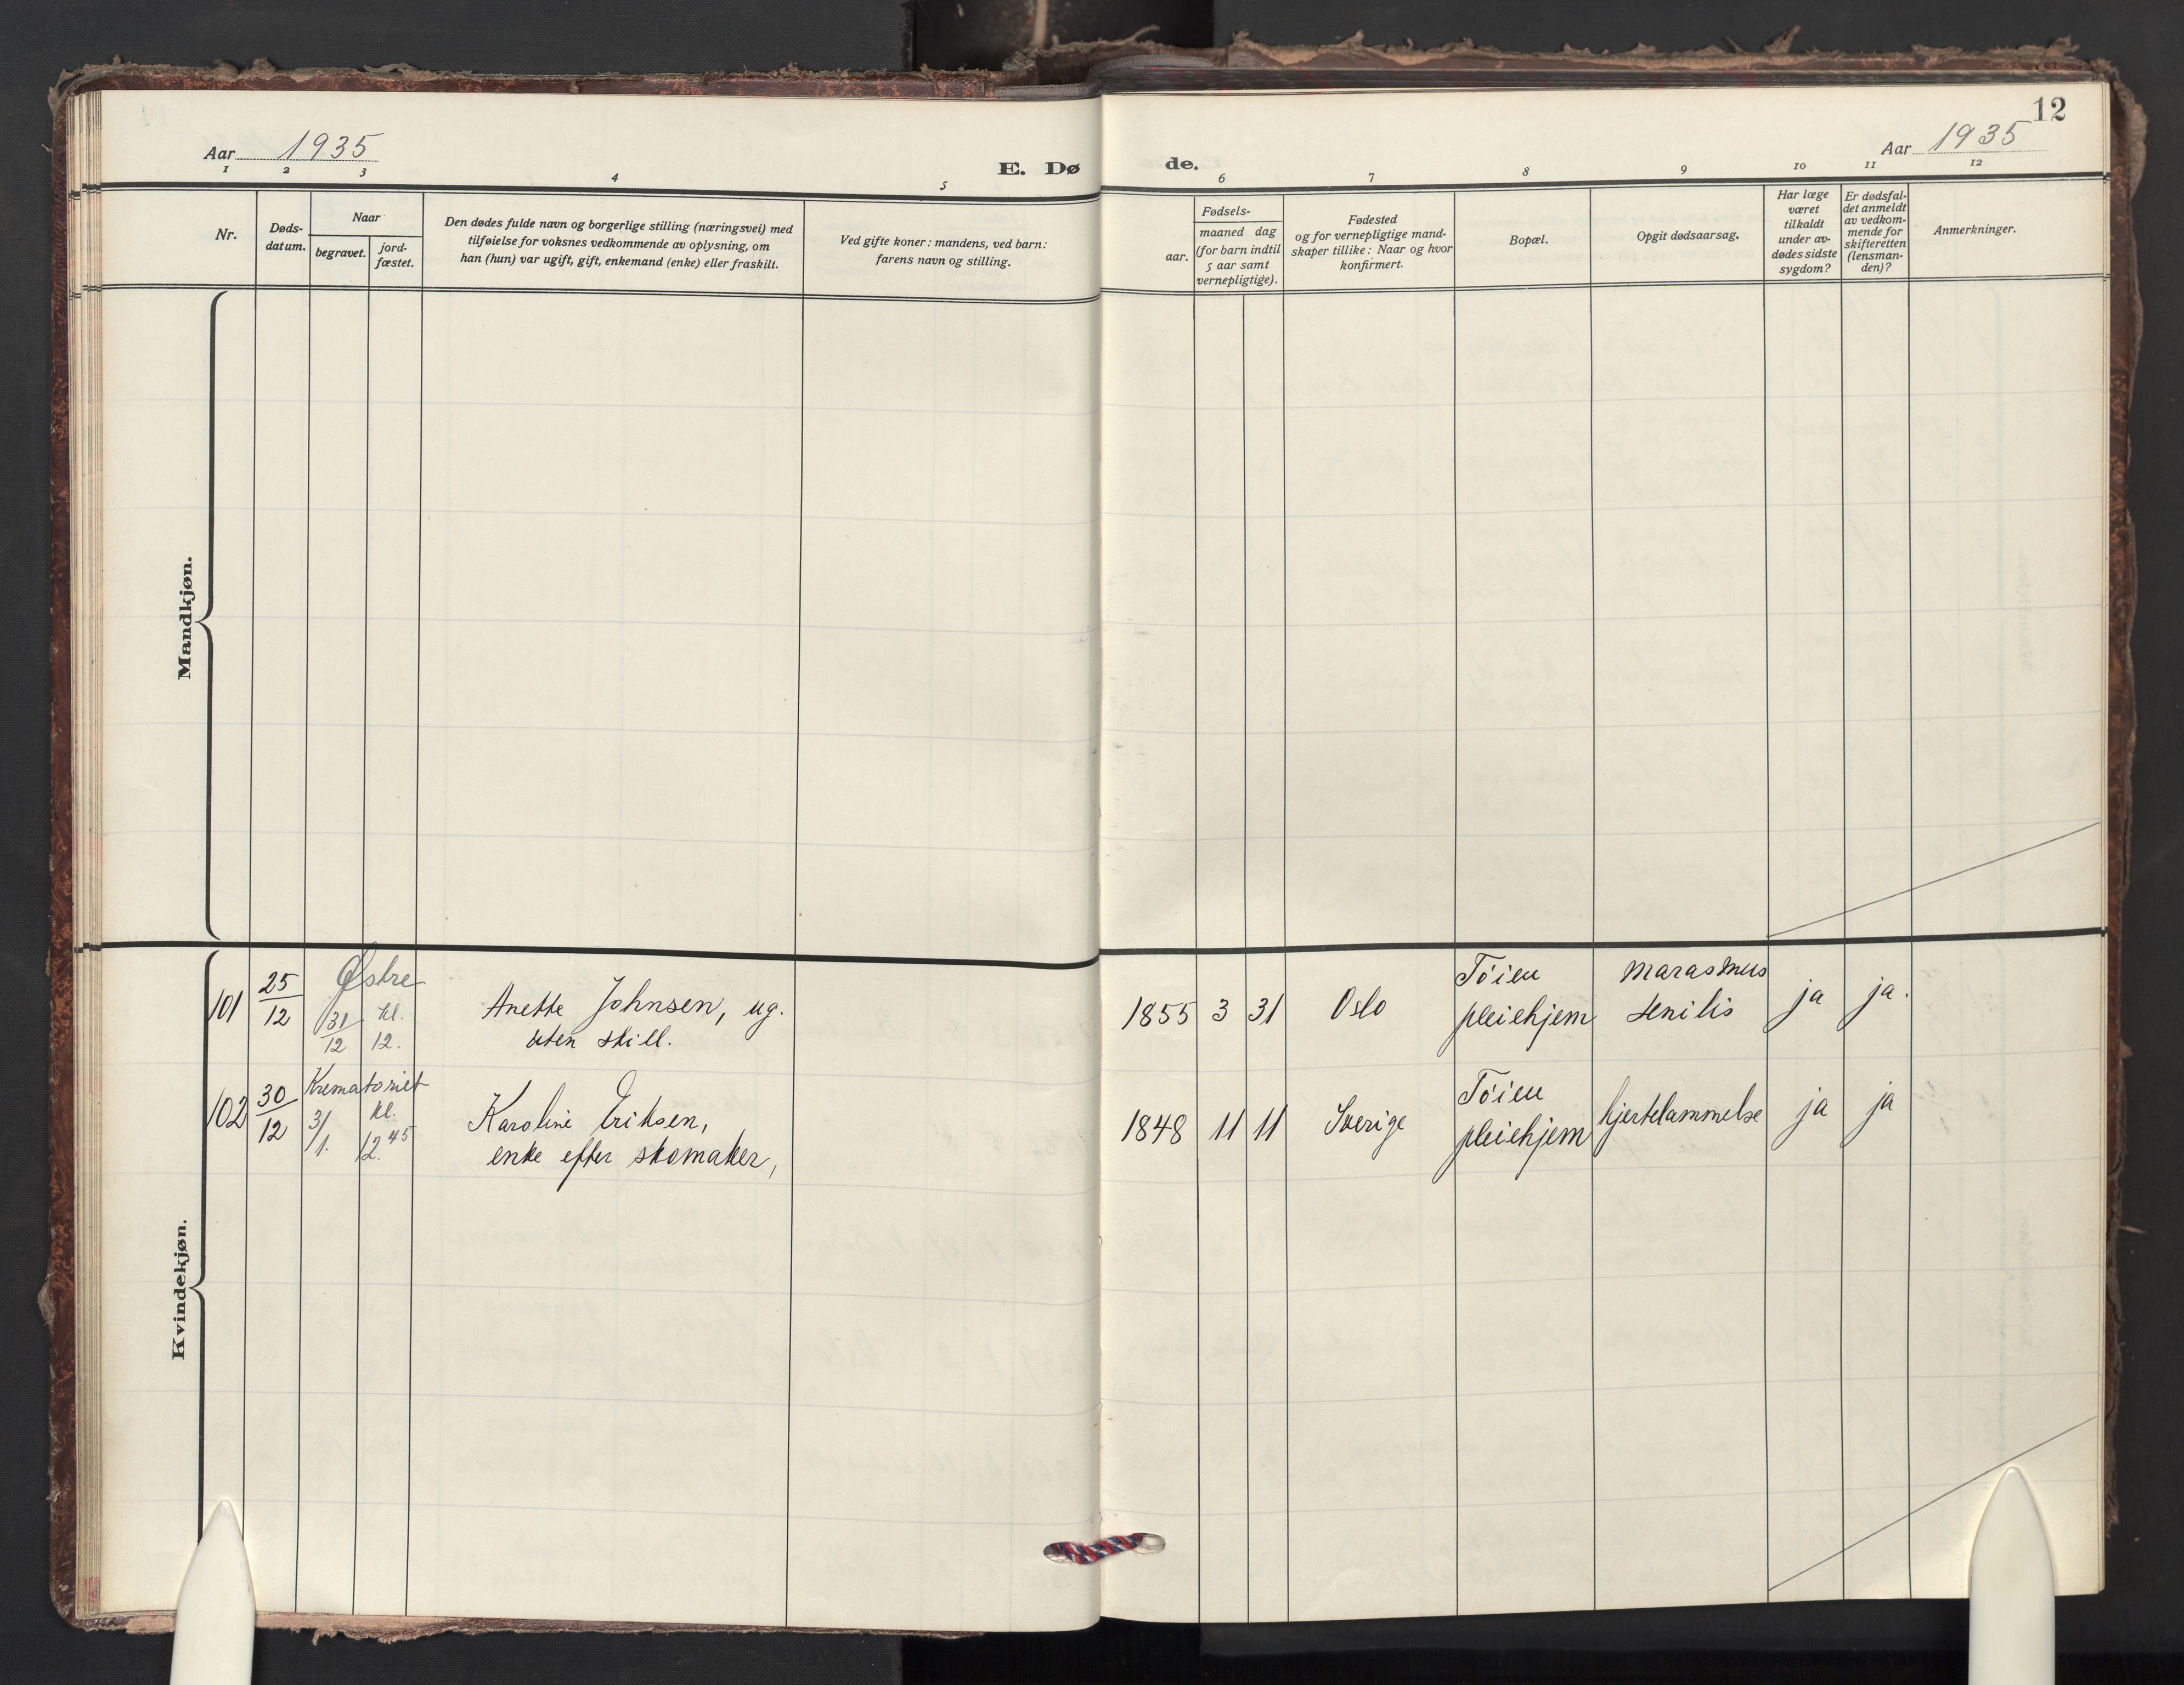 12
Aar 1935
Aar 1935
E. Dø
de.
1 2 3 4 5 6 7 8 9 10 11 12
Nr.
Døds-
datum.
Naar
begravet.
jord-
fæstet.
Den dødes fulde navn og borgerlige stilling (næringsvei) med
tilføielse for voksnes vedkommende av oplysning, om
han (hun) var ugift, gift, enkemand (enke) eller fraskilt.
Ved gifte koner: mandens, ved barn:
farens navn og stilling.
Fødsels-
aar.
maaned dag
(for barn indtil
5 aar samt
vernepligtige).
Fødested
og for vernepligtige mand-
skaper tillike: Naar og hvor
konfirmert.
Bopæl.
Opgit dødsaarsag.
Har læge
været
tilkaldt
under av-
dødes sidste
sygdom?
Er dødsfal-
det anmeldt
av vedkom-
mende for
skifteretten
(lensman-
den)?
Anmerkninger.
Mandkjøn.
Kvindekjøn.
101
25
12
Østre
31
12
kl.
12.
Anette Johnsen, ug.
uten still.
1855 3 31 Oslo
Töien
pleiehjem
marasmus
senilis
ja ja.
102
30
12
Krematoriet
3/
1.
kl.
12.45
Karoline Eriksen,
enke efter skomaker,
1848 11 11 Sverige
Töien
pleiehjem
hjertelammelse
ja ja